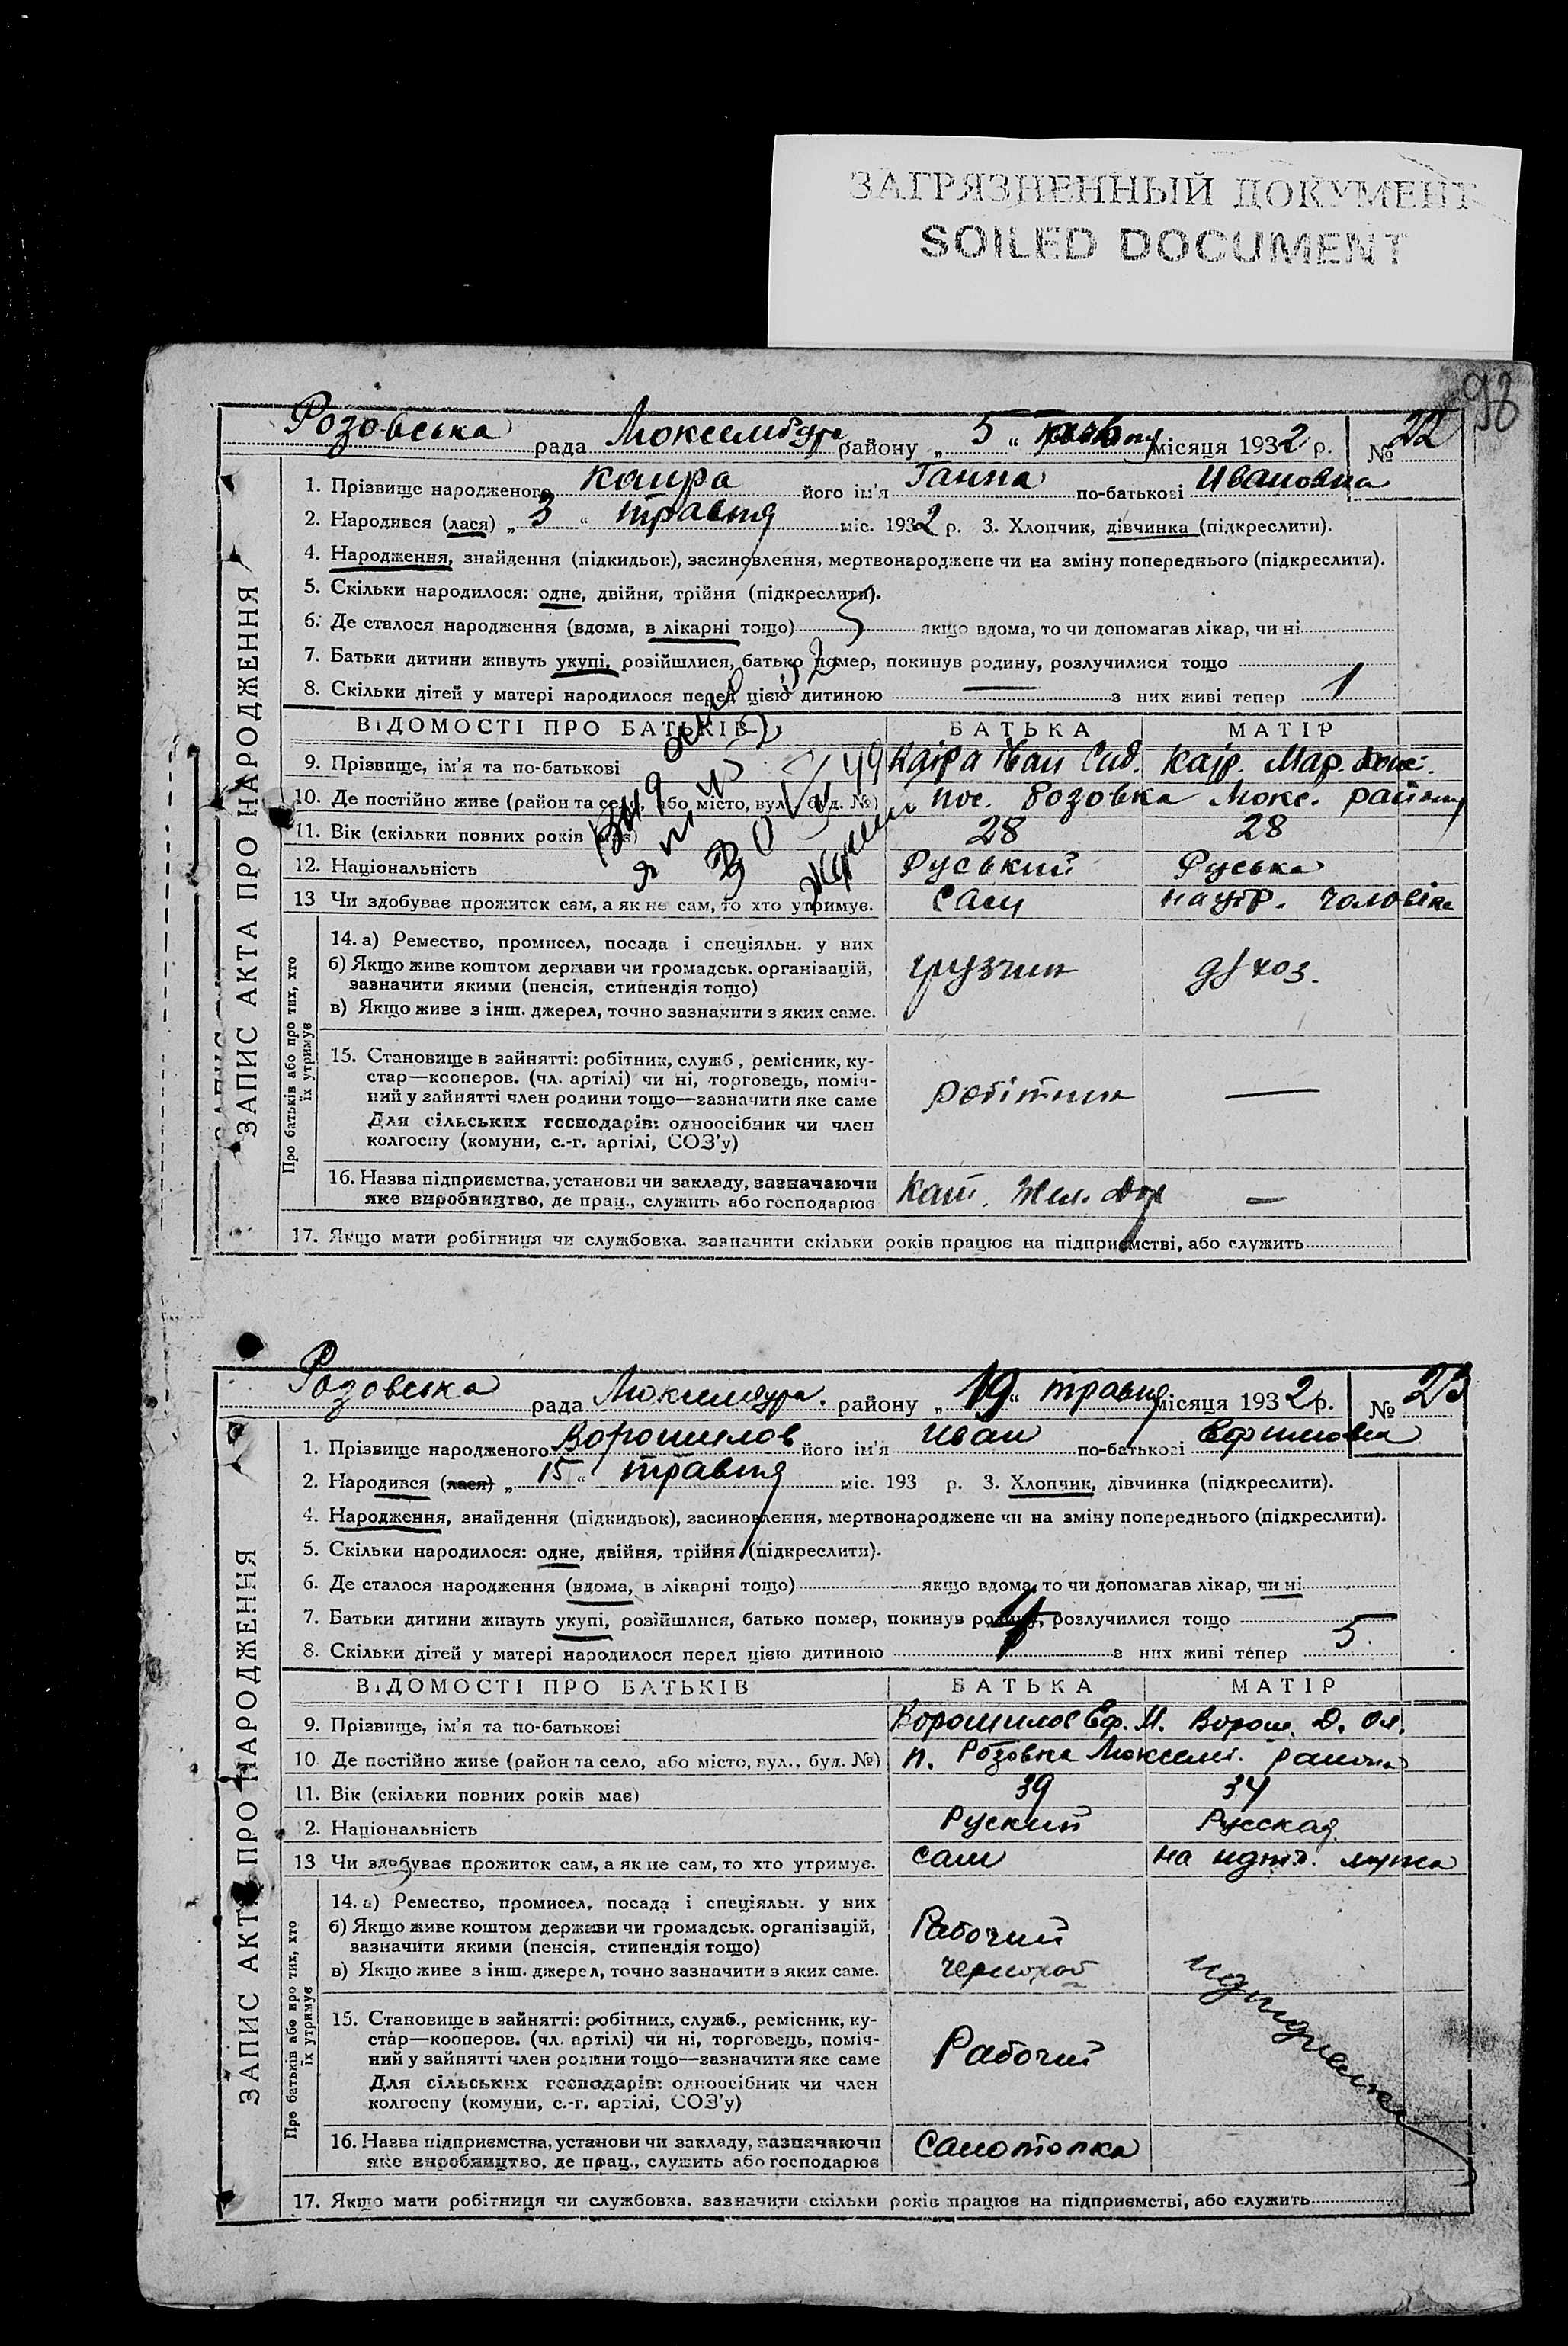 ЗАГРЯЗНЕННЫЙ ДОКУМЕНТ
SOILED DOCUMENT
98
Розовська рада Люксембур району „ 5 “ травня місяця 1932 р. № 22
ЗАПИС АКТА ПРО НАРОДЖЕННЯ
1. Прізвище народженого Каира його ім'я Ганна по-батькові Ивановна
2. Народився (лася) „ 3 “ травня міс. 1932 р. 3. Хлопчик, дівчинка (підкреслити).
4. Народження, знайдення (підкидьок), засиновлення, мертвонароджене чи на зміну попереднього (підкреслити).
5. Скільки народилося: одне, двійня, трійня (підкреслити).
6. Де сталося народження (вдома, в лікарні тощо) якщо вдома, то чи допомагав лікар, чи ні
7. Батьки дитини живуть укупі, розійшлися, батько помер, покинув родину, розлучилися тощо
8. Скільки дітей у матері народилося перед цією дитиною — з них живі тепер 1
ВІДОМОСТІ ПРО БАТЬКІВ БАТЬКА МАТІР
9. Прізвище, ім'я та по-батькові Каіра Іван Сид. Каір. Мар.
10. Де постійно живе (район та село, або місто, вул., буд. №) пос. Розовка Люкс. району
11. Вік (скільки повних років має) 28 28
12. Національність Руський Руська
13 Чи здобуває прожиток сам, а як не сам, то хто утримує. Сам на утр. чоловіка
Про батьків або про тих, хто їх утримує
14. а) Ремество, промисел, посада і спеціяльн. у них
б) Якщо живе коштом держави чи громадськ. організацій,
зазначити якими (пенсія, стипендія тощо) грузчик д/хоз.
в) Якщо живе з інш. джерел, точно зазначити з яких саме.
15. Становище в зайнятті: робітник, служб., ремісник, ку-
стар—кооперов. (чл. артілі) чи ні, торговець, поміч-
ний у зайнятті член родини тощо—зазначити яке саме робітник —
Для сільських господарів: одноосібник чи член
колгоспу (комуни, с.-г. артілі, СОЗ'у)
16. Назва підприємства, установи чи закладу, зазначаючи
яке виробництво, де прац., служить або господарює Кат. Жел. Дор —
17. Якщо мати робітниця чи службовка, зазначити скільки років працює на підприємстві, або служить
Розовська рада Люксембур. району „ 19 “ травня місяця 1932 р. № 23
ЗАПИС АКТА ПРО НАРОДЖЕННЯ
1. Прізвище народженого Ворошилов його ім'я Иван по-батькові Ефимовка
2. Народився (лася) „ 15 “ травня міс. 193 р. 3. Хлопчик, дівчинка (підкреслити).
4. Народження, знайдення (підкидьок), засиновлення, мертвонароджене чи на зміну попереднього (підкреслити).
5. Скільки народилося: одне, двійня, трійня (підкреслити).
6. Де сталося народження (вдома, в лікарні тощо) якщо вдома, то чи допомагав лікар, чи ні
7. Батьки дитини живуть укупі, розійшлися, батько помер, покинув родину, розлучилися тощо
8. Скільки дітей у матері народилося перед цією дитиною 4 з них живі тепер 5
ВІДОМОСТІ ПРО БАТЬКІВ БАТЬКА МАТІР
9. Прізвище, ім'я та по-батькові Ворошилов Еф. М. Ворош. Д. Ол.
10. Де постійно живе (район та село, або місто, вул., буд. №) п. Розовка Люксем. района
11. Вік (скільки повних років має) 39 34
2. Національність Руский Русская
13 Чи здобуває прожиток сам, а як не сам, то хто утримує. сам на мужа
Про батьків або про тих, хто їх утримує
14. а) Ремество, промисел, посада і спеціяльн. у них
б) Якщо живе коштом держави чи громадськ. організацій, Рабочий
зазначити якими (пенсія, стипендія тощо)
в) Якщо живе з інш. джерел, точно зазначити з яких саме. Чернораб
15. Становище в зайнятті: робітник, служб., ремісник, ку-
стар—кооперов. (чл. артілі) чи ні, торговець, поміч-
ний у зайнятті член родини тощо—зазначити яке саме Рабочий
Для сільських господарів: одноосібник чи член
колгоспу (комуни, с.-г. артілі, СОЗ'у)
16. Назва підприємства, установи чи закладу, зазначаючи
яке виробництво, де прац., служить або господарює
17. Якщо мати робітниця чи службовка, зазначити скільки років працює на підприємстві, або служить